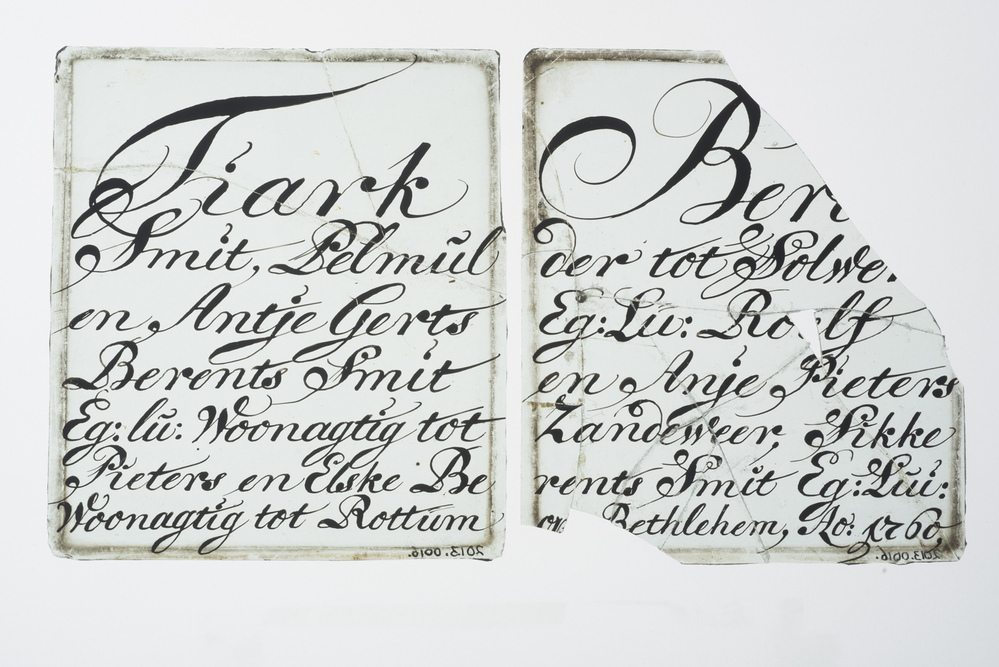 Tiark Ber
Smit, Pelmŭl der tot Solwe
en Antje Gerts Eg:Lu: Ro lf
Berents Smit en Anje Pieters
Eg: lŭ: Woonagtig tot Zandeweer, Sikke
Pieters en Elske Be rents Smit Eg:Lui:
Woonagtig tot Rottŭm Bethlehem, Ao: 1760,
2013.0016. 2013.0016.